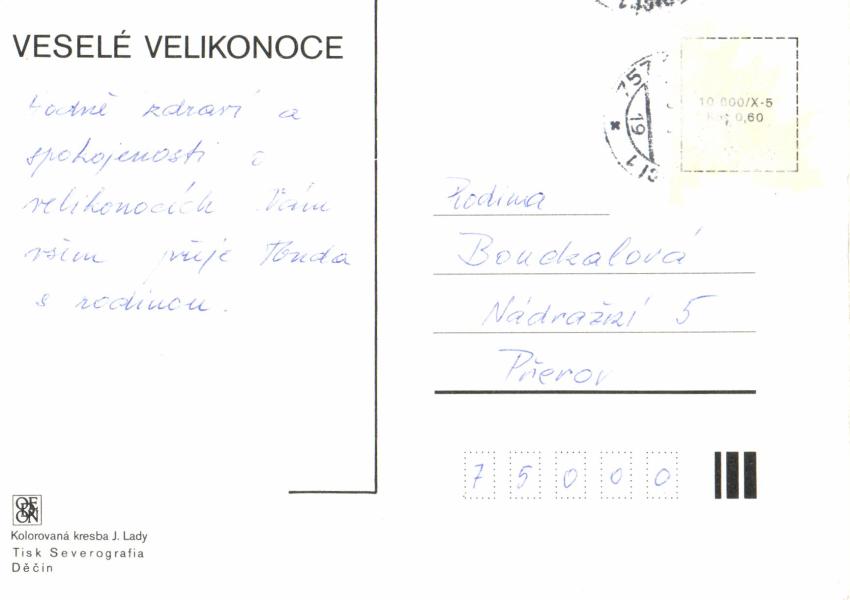 VESELÉ VELIKONOCE
Hodně zdraví a
spokojenosti o
velikonocích Vám
všem přeje Honda
s rodinou.
10 000/X-5
Kčs 0,60
757
19
Rodina
Bouckalová
Nádražní 5
Přerov
7 5 0 0 0
ODEON
Kolorovaná kresba J. Lady
Tisk Severografia
Děčín